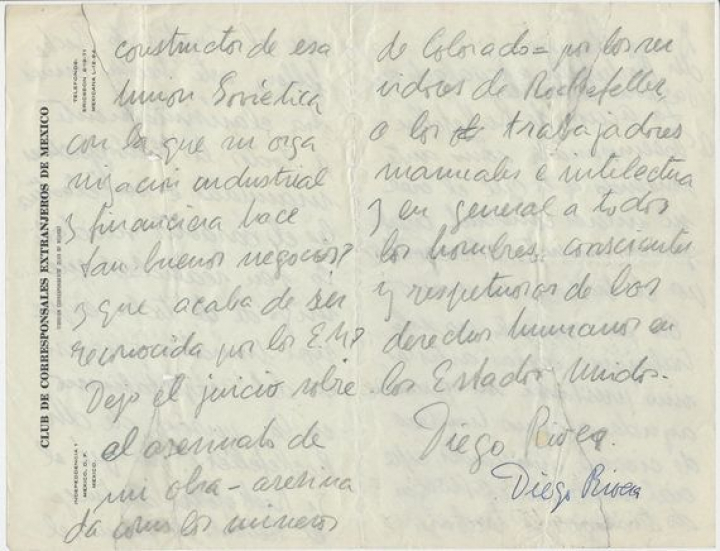 CLUB DE CORRESPONSALES EXTRANJEROS DE MEXICO
TELEFONOS:
ERICSSON
MEXICANA
INDEPENDENCIA
MEXICO, D. F.
MEXICO.
constructor de esa
Union Soviética
con la que mi orga
nización industrial
y financiera hace
tan buenos negocios?
y que acaba de ser
reconocida por los E.U?
Dejo el juicio sobre
el asesinato de
mi obra - asesina
da como los mineros
de Colorado = por los ser
vidores de Rockefeller,
a los trabajadores
manuales é intelectua
y en general a todos
los hombres, consciente
y respetuosos de los
derechos humanos en
los Estados Unidos.
Diego Rivera.
Diego Rivera